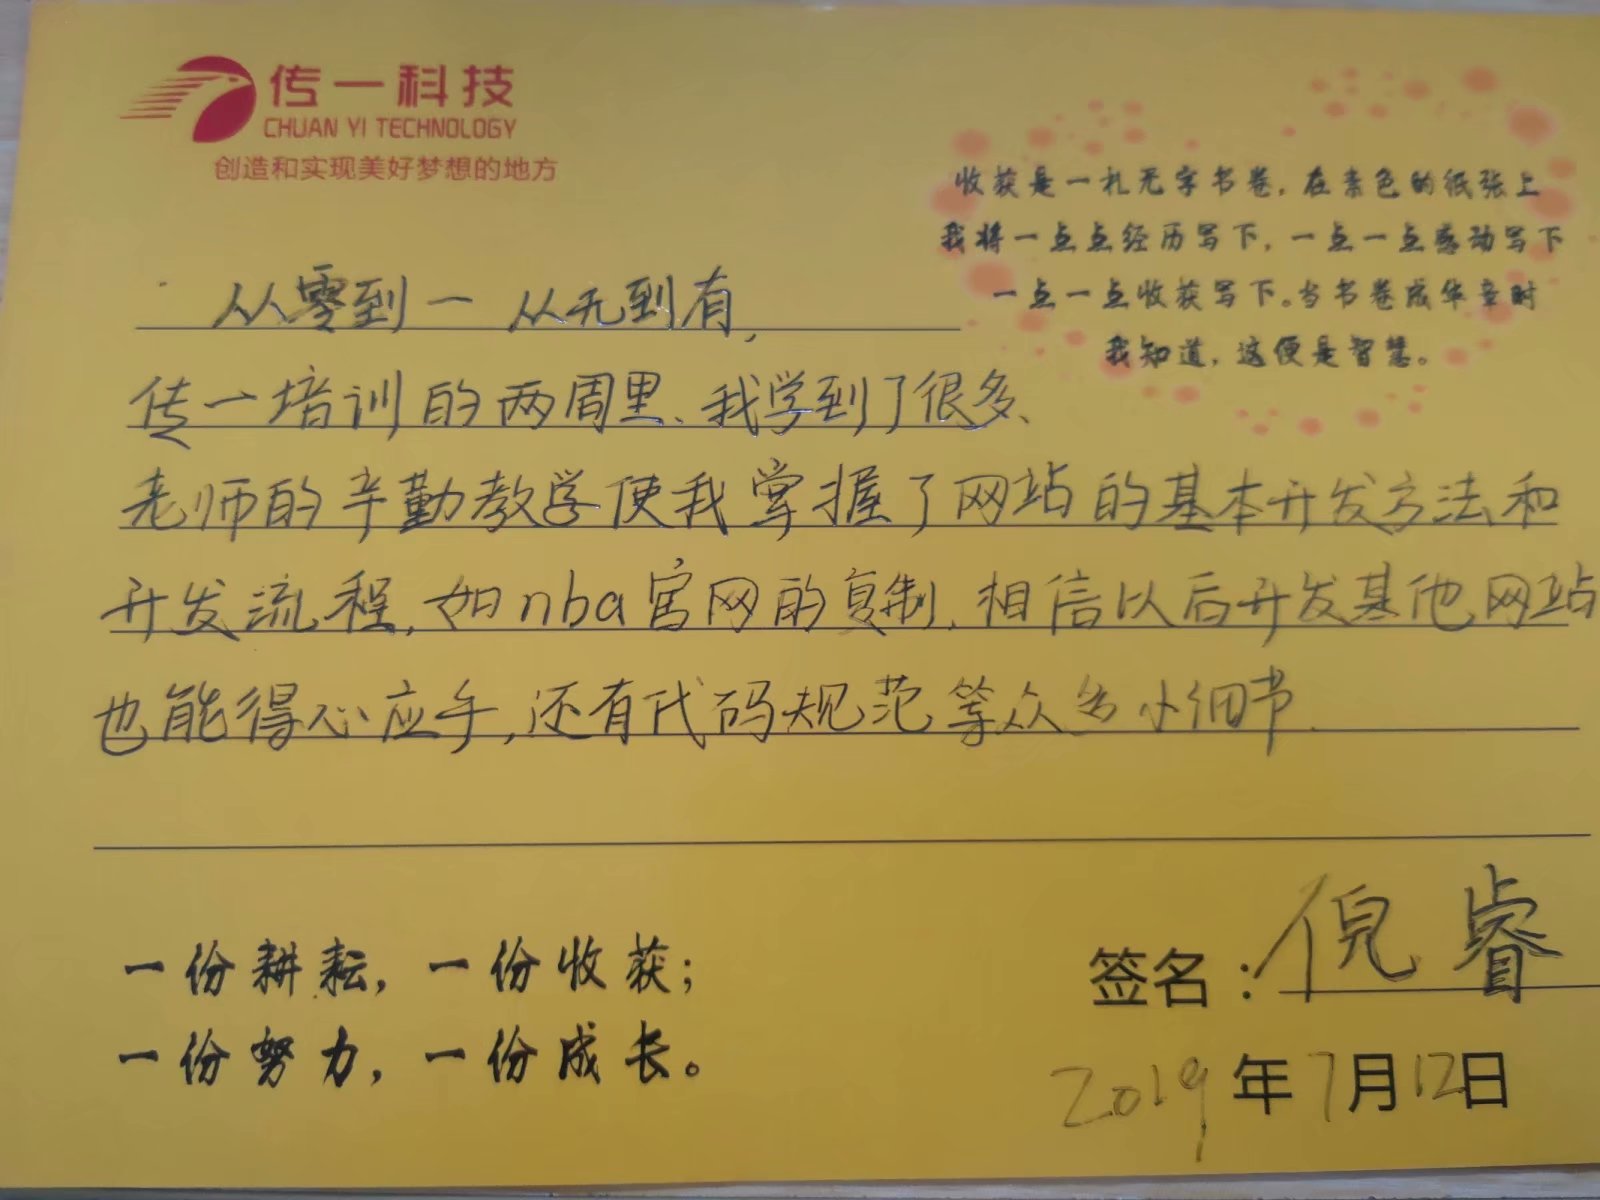 传一科技
CHUAN YI TECHNOLOGY
创造和实现美好梦想的地方
收获是一札无字书卷，在素色的纸张上
我将一点点经历写下，一点一点感动写下
一点一点收获写下。当书卷成华章时
我知道，这便是智慧。
从零到一 从无到有，
传一培训的两周里、我学到了很多、
老师的辛勤教学使我掌握了网站的基本开发方法和
开发流程，如nba官网的复制，相信以后开发其他网站
也能得心应手，还有代码规范等众多小细节.
一份耕耘，一份收获；
一份努力，一份成长。
签名：倪睿
2019年7月12日